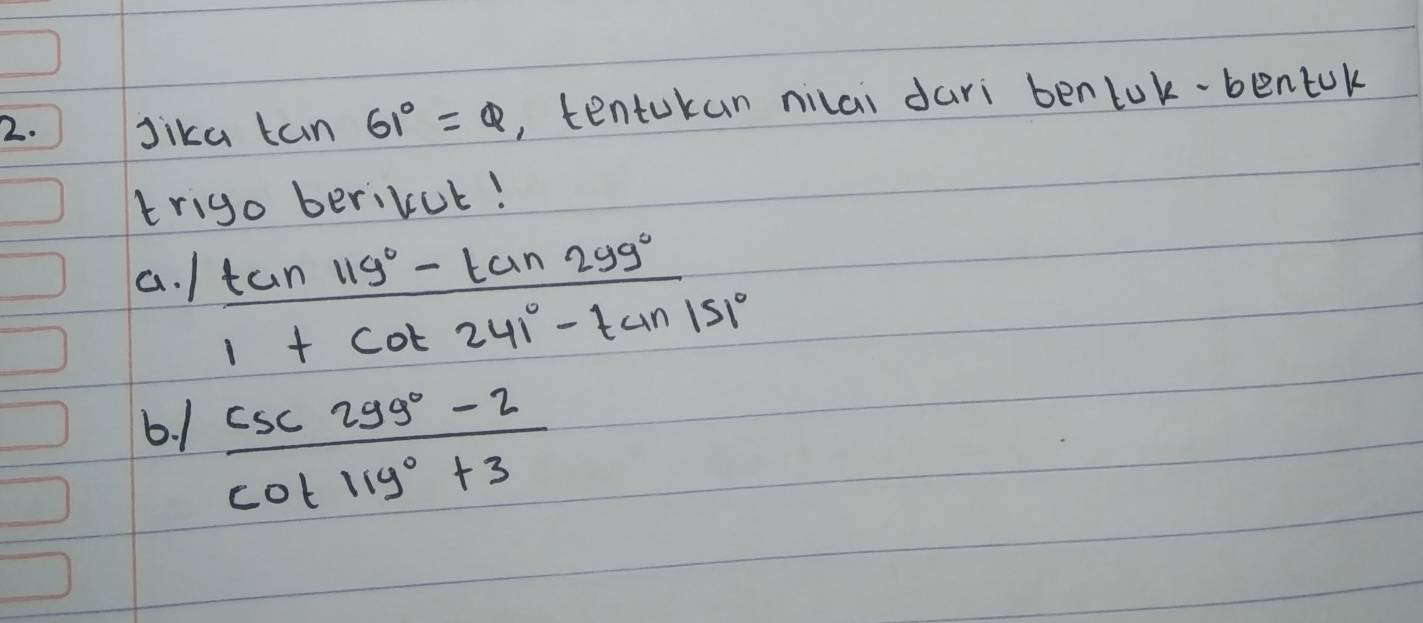 2. Jika tan 61° = a, tentukan nilai dari bentuk-bentuk
trigo berikut!
a./ tan 119° - tan 299°
1 + cot 241° - tan 151°
b./ csc 299° - 2
cot 119° + 3